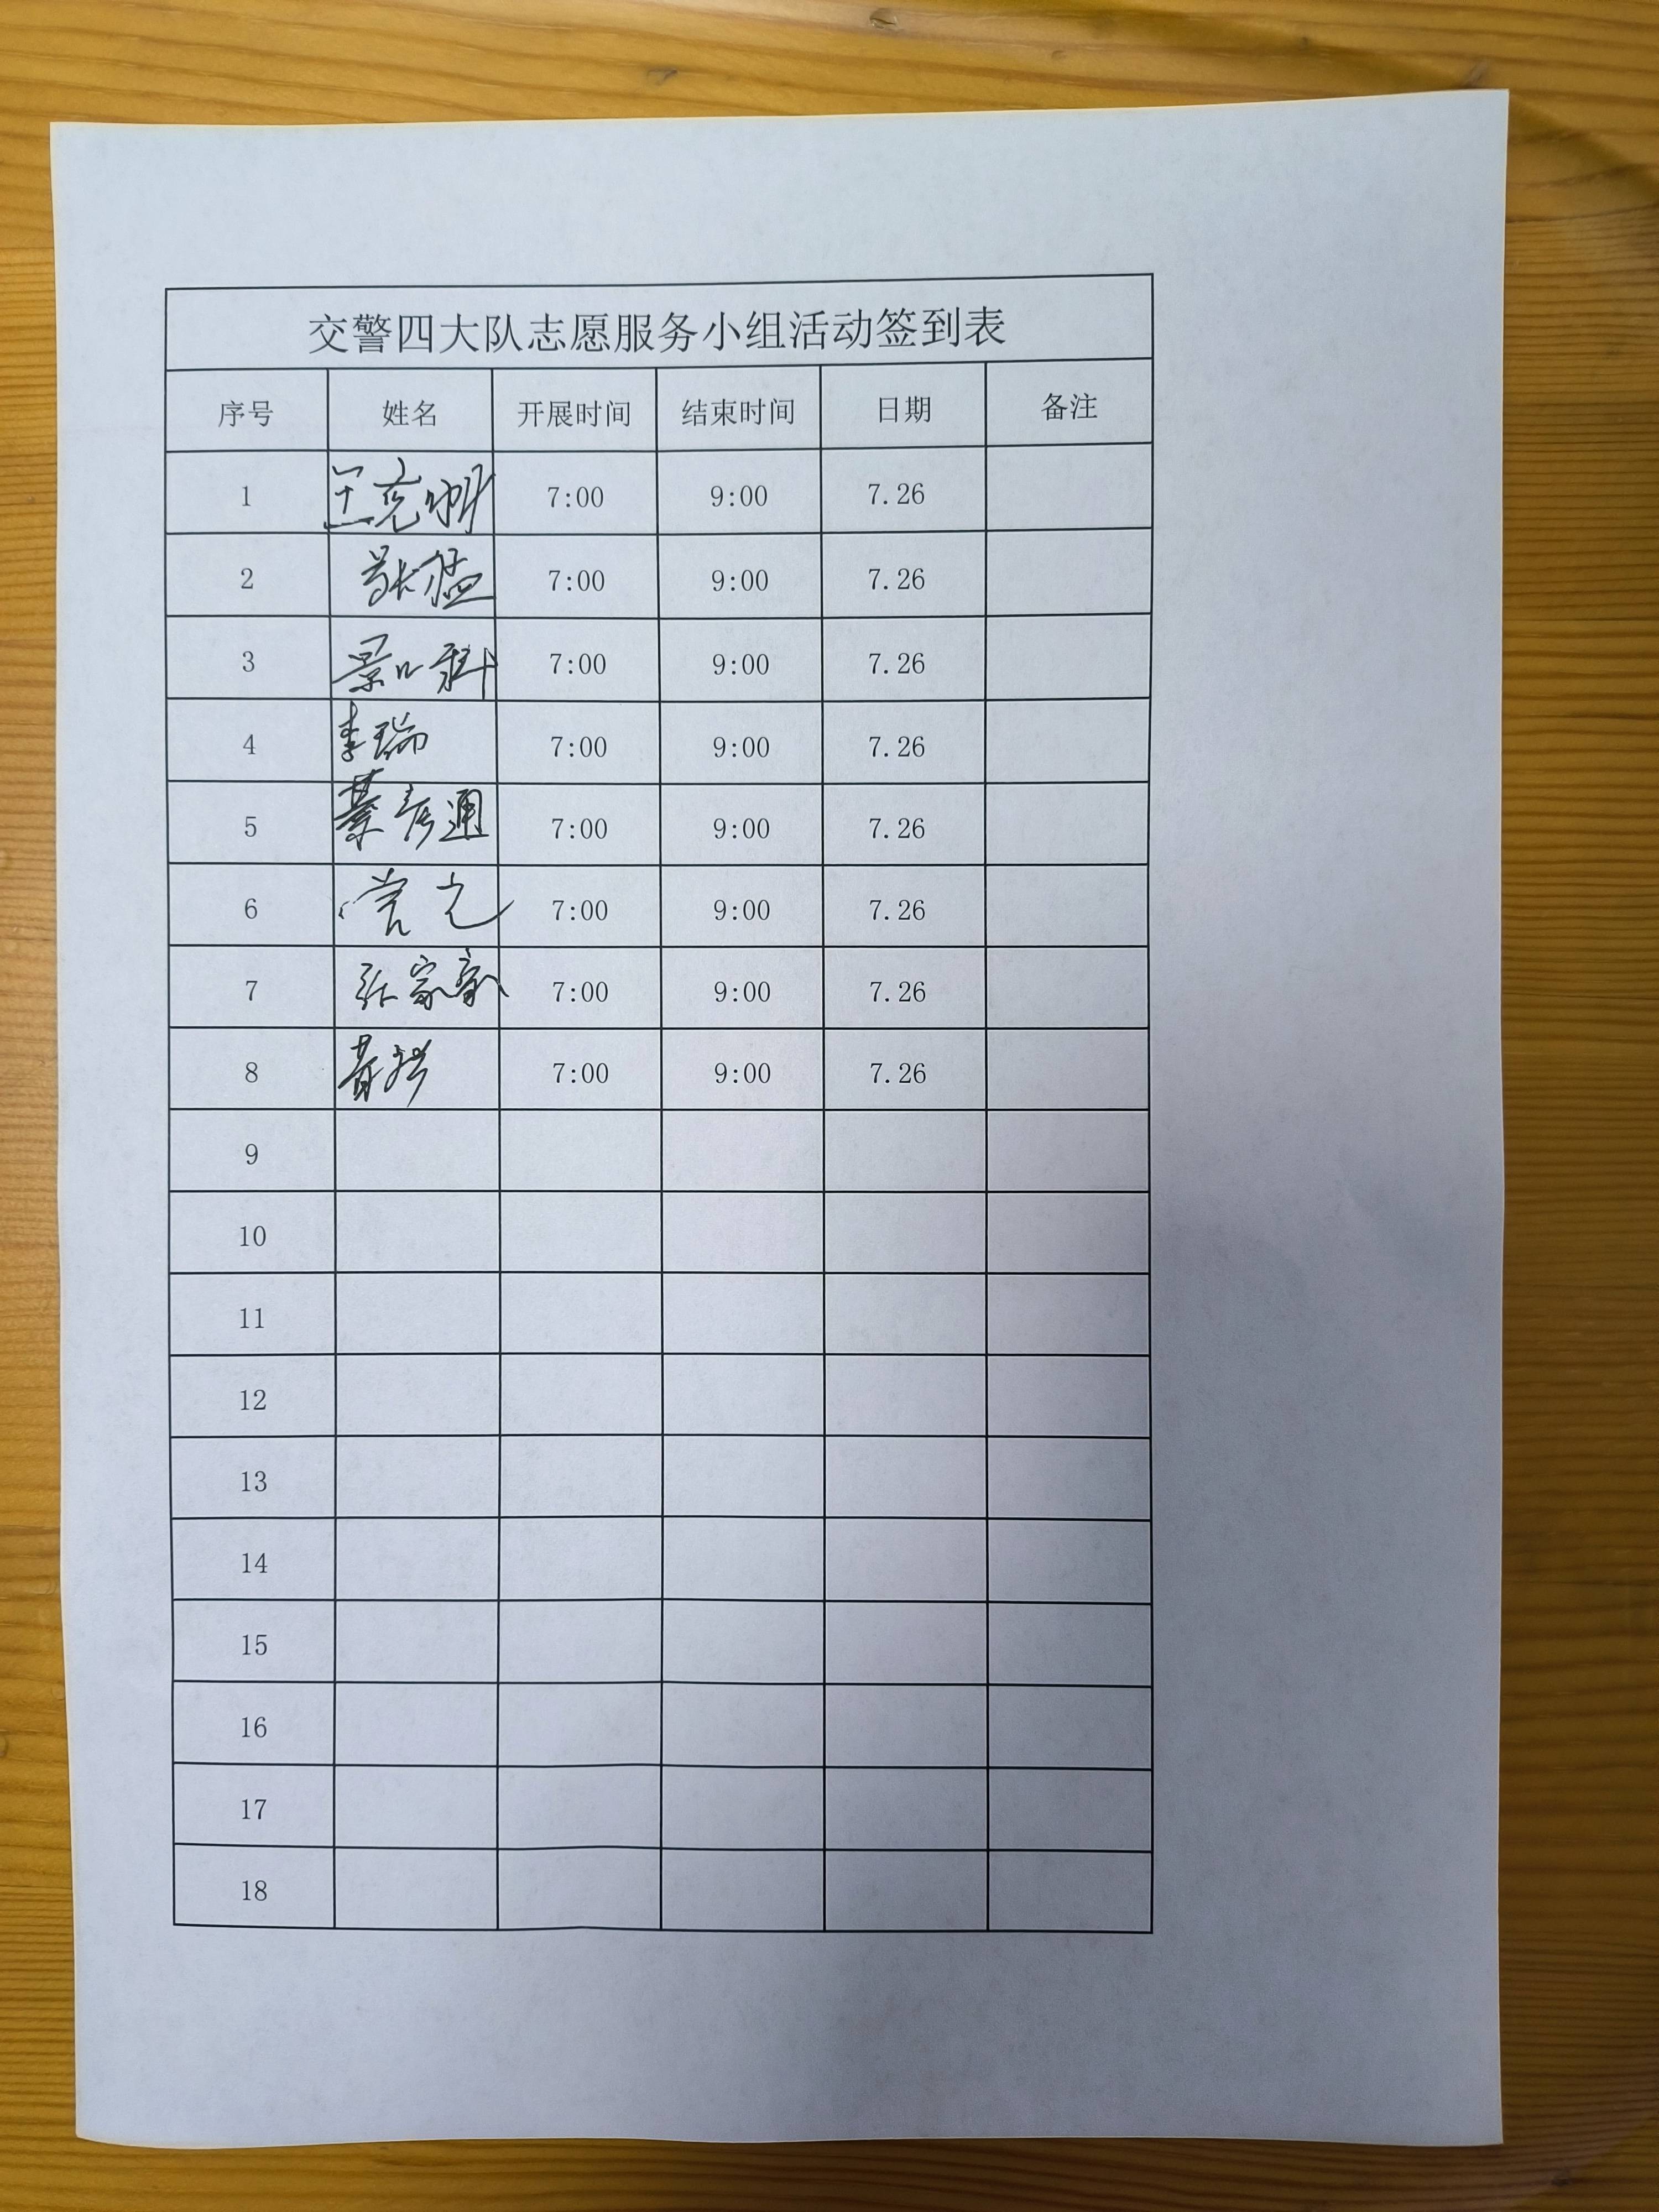 交警四大队志愿服务小组活动签到表
序号 姓名 开展时间 结束时间 日期 备注
1 王克 7:00 9:00 7.26
2 张猛 7:00 9:00 7.26
3 景 7:00 9:00 7.26
4 李瑞 7:00 9:00 7.26
5 綦彦通 7:00 9:00 7.26
6 7:00 9:00 7.26
7 张家豪 7:00 9:00 7.26
8 7:00 9:00 7.26
9
10
11
12
13
14
15
16
17
18